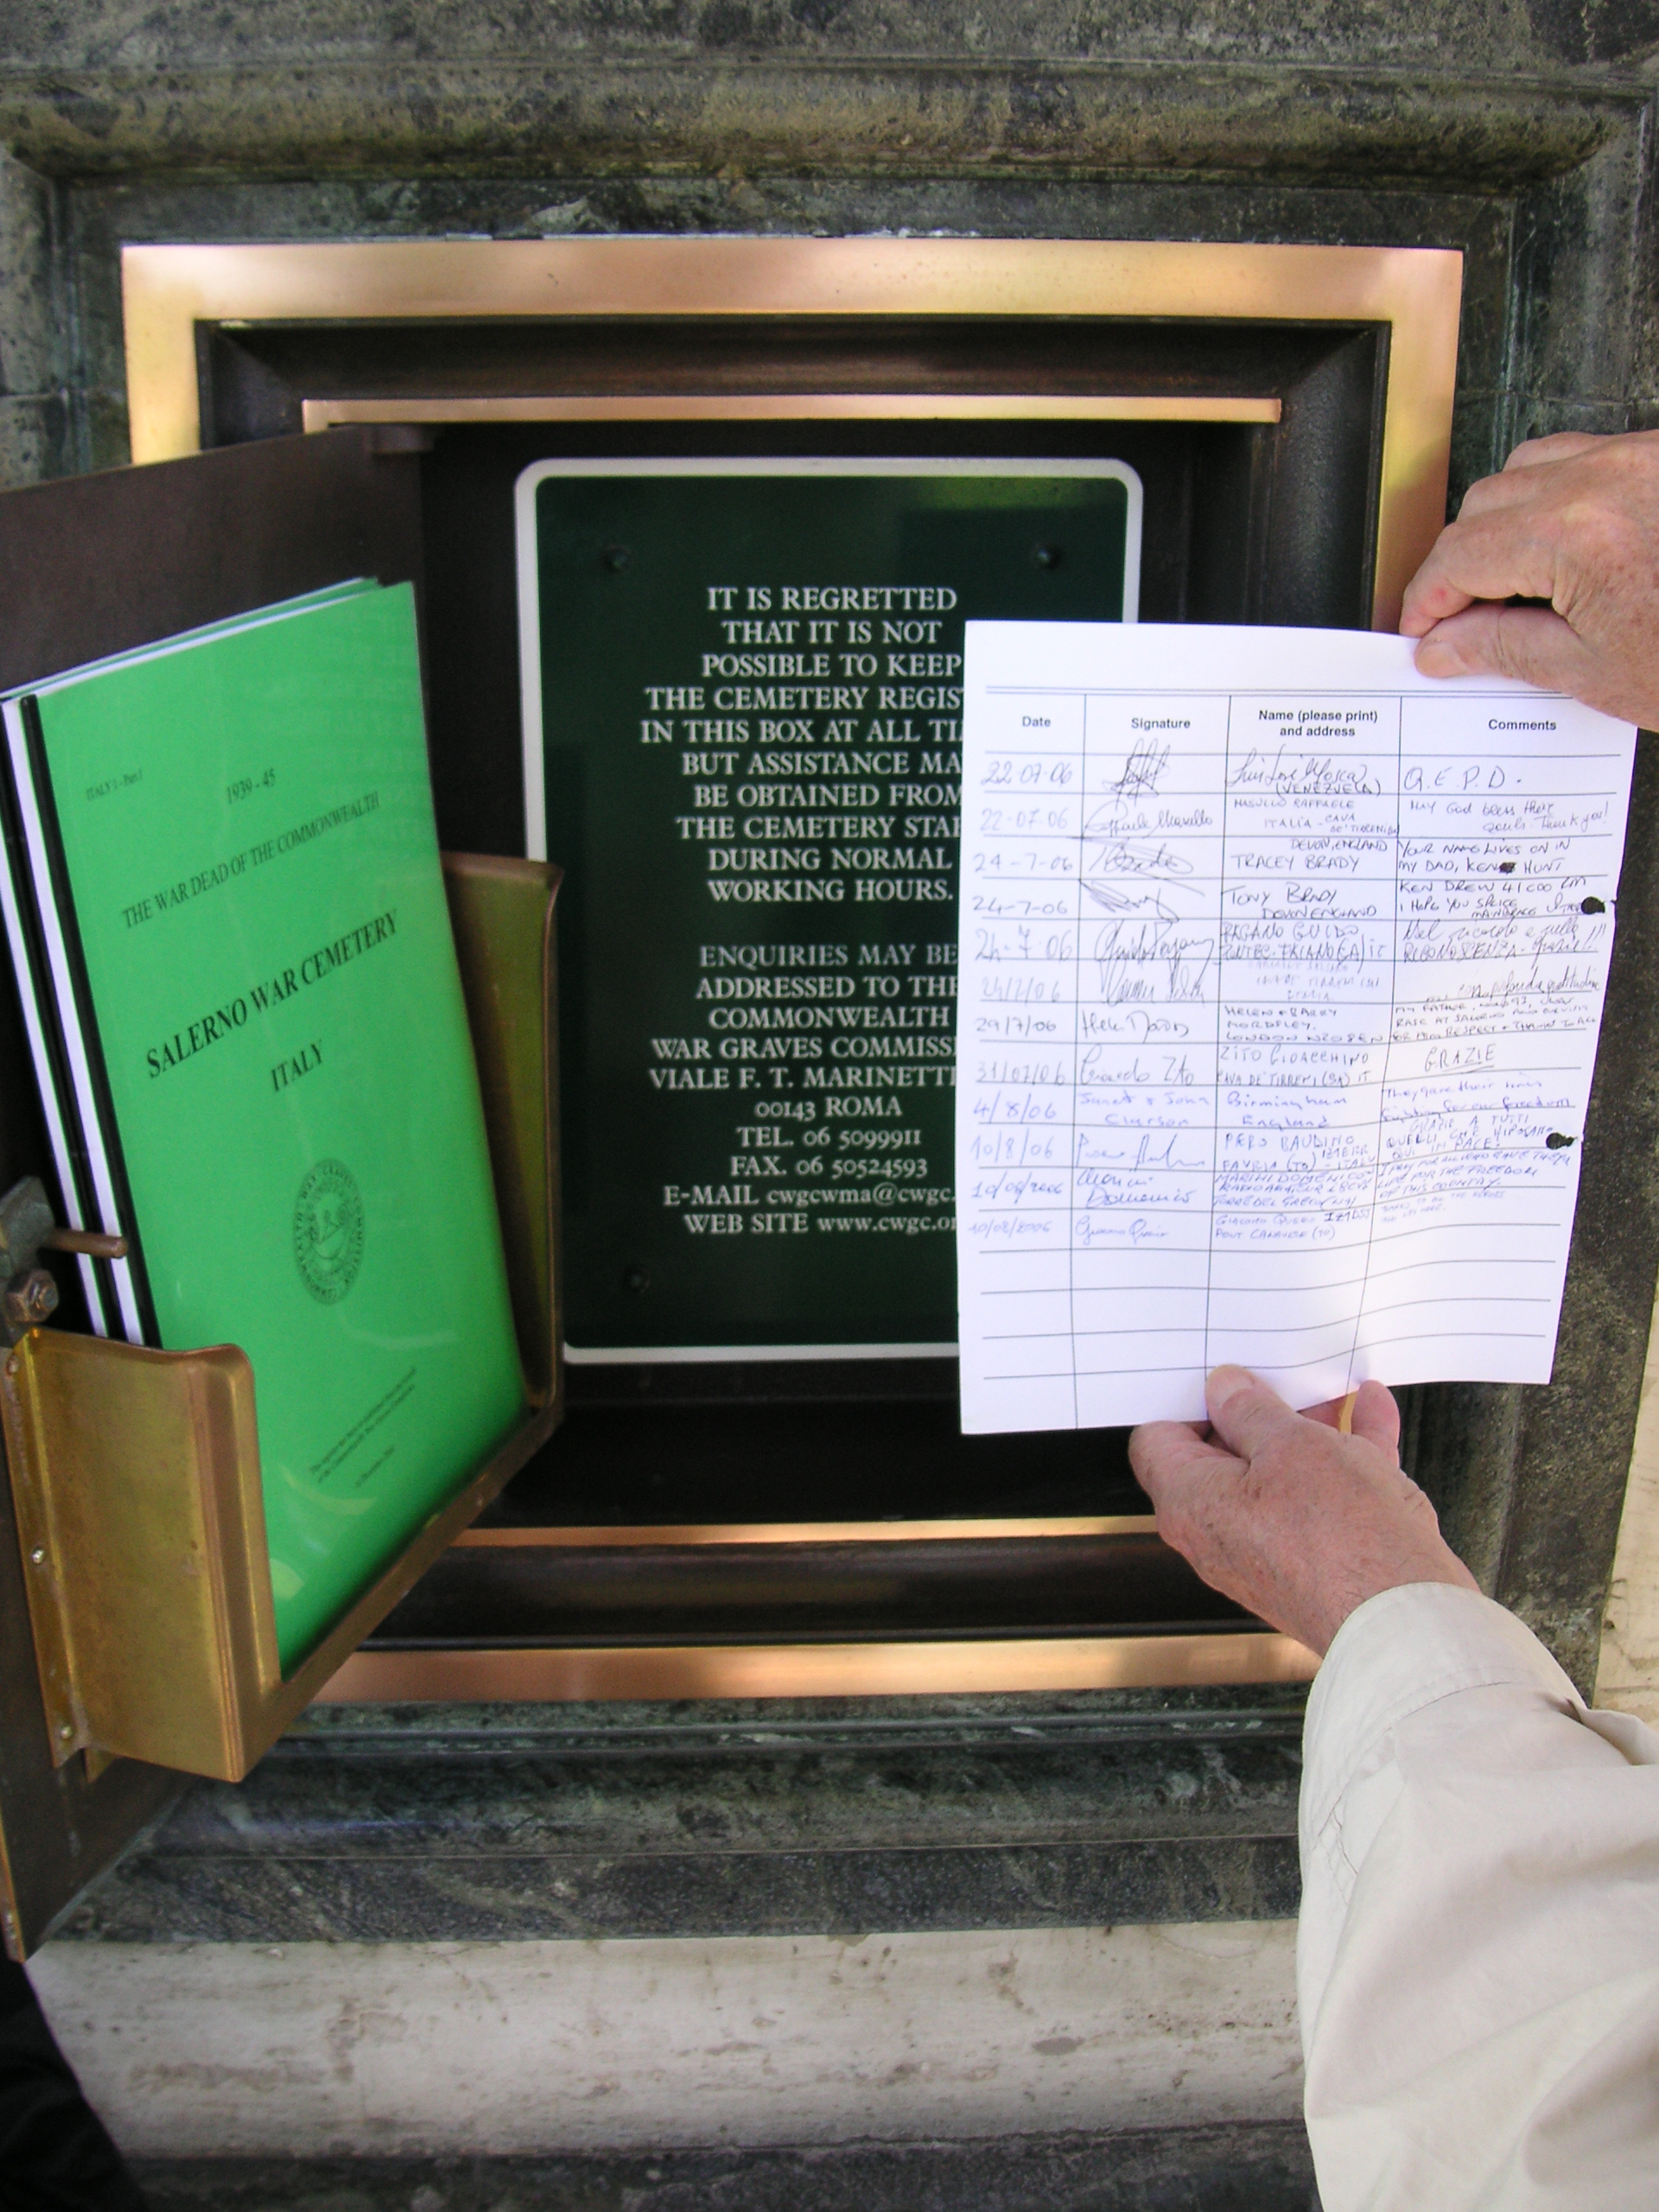 ITALY 1 - Part 1
1939 - 45
THE WAR DEAD OF THE COMMONWEALTH
SALERNO WAR CEMETERY
ITALY
IT IS REGRETTED
THAT IT IS NOT
POSSIBLE TO KEEP
THE CEMETERY REGIS
IN THIS BOX AT ALL TI
BUT ASSISTANCE MA
BE OBTAINED FROM
THE CEMETERY STA
DURING NORMAL
WORKING HOURS.
ENQUIRIES MAY BE
ADDRESSED TO THE
COMMONWEALTH
WAR GRAVES COMMISS
VIALE F. T. MARINETTI
00143 ROMA
TEL. 06 5099911
FAX. 06 50524593
E-MAIL cwgcwma@cwgc.
WEB SITE www.cwgc.or
Date Signature Name (please print) and address Comments
22-07-06 Luis José Mosca (VENEZUELA) Q.E.P.D.
22-07-06 MASULLO RAFFAELE ITALIA - CAVA DE' TIRRENI May God bless these souls. Thank you!
24-7-06 DEVON, ENGLAND TRACEY BRADY YOUR NAME LIVES ON IN MY DAD, KEN HUNT
24-7-06 TONY BRADY DEVON ENGLAND KEN DREW I HOPE YOU SPLICE MAINBRACE
24-7-06 PAGANO GUIDO RICONOSCENZA. Grazie!!!
24/7/06 con profonda gratitudine
29/7/06 HELEN & BARRY MORDSLEY, LONDON MY FATHER, SALERNO RESPECT + THANKS TO ALL
31/07/06 Zito ZITO GIOACCHINO CAVA DE' TIRRENI (SA) IT GRAZIE
4/8/06 Janet & John Clarson Birmingham England They gave their lives fighting for our freedom
10/8/06 PIERO BAUDINO FAVRIA (TO) - ITALY GRAZIE A TUTTI QUELLI CHE RIPOSANO QUI IN PACE.
10/08/2006 Domenico DOMENICO TORRE DEL GRECO (NA) I PRAY FOR ALL WHO GAVE THEIR LIFE FOR THE FREEDOM OF THIS COUNTRY.
10/08/2006 GIACOMO PONT CANAVESE (TO)